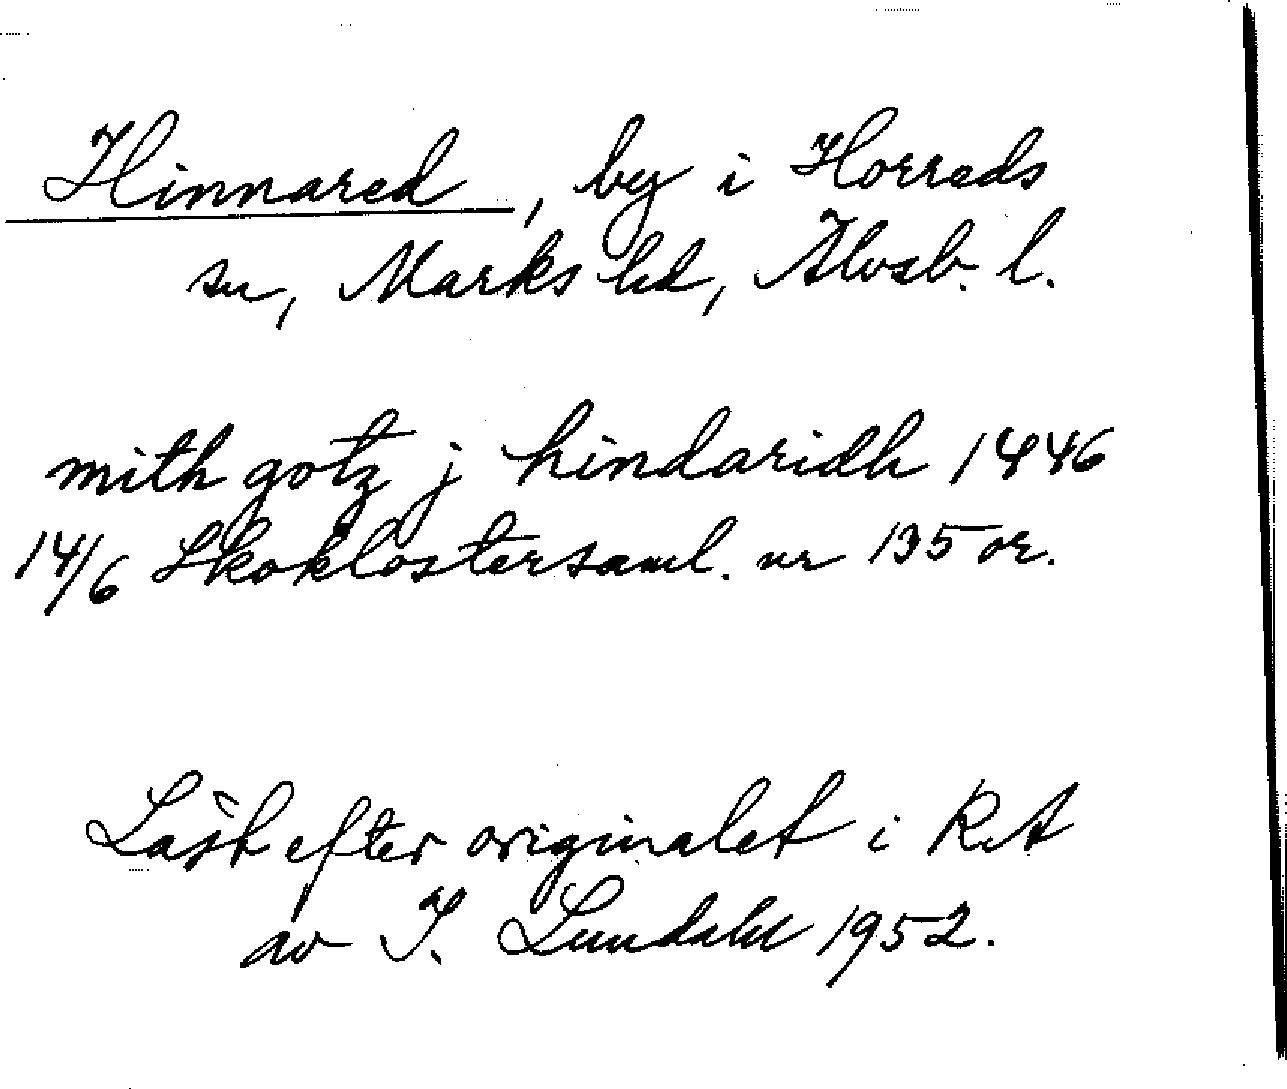 Hinnared, by i Horreds
sn, Marks hd, Älvsb. l.
mith gotz j hindaridh 1446
14/6 Skoklostersaml. nr 135 or.
Läst efter originalet i RA
av I. Lundahl 1952.